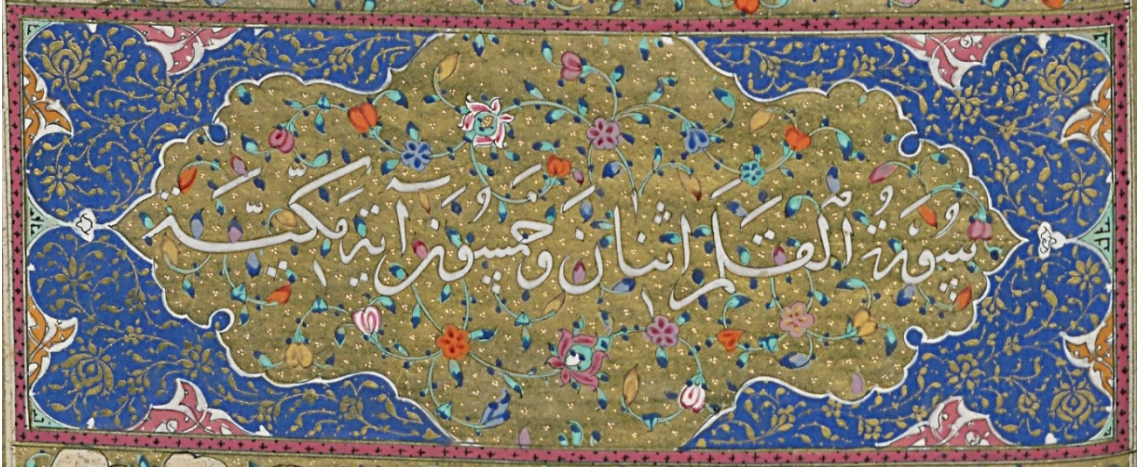 سُورَةُ الْقَلَمِ اثْنَانِ وَخَمْسُونَ آيَةً مَكِّيَّة